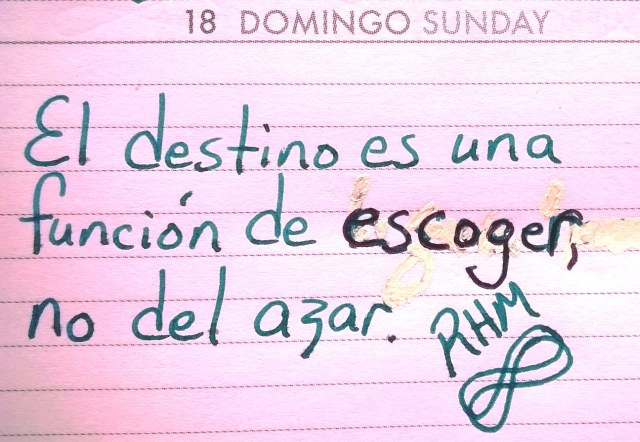 18 DOMINGO SUNDAY
El destino es una
función de escoger,
no del azar.
RHM